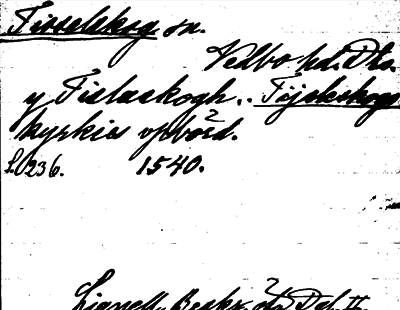 Tisselskog sn.
Vedbo hd. Dls.
y Tislaskogh.. Tijslskogs
kyrkies opbörd.
S. 236. 1540.
Lignell, Beskr. öv. Dal II.